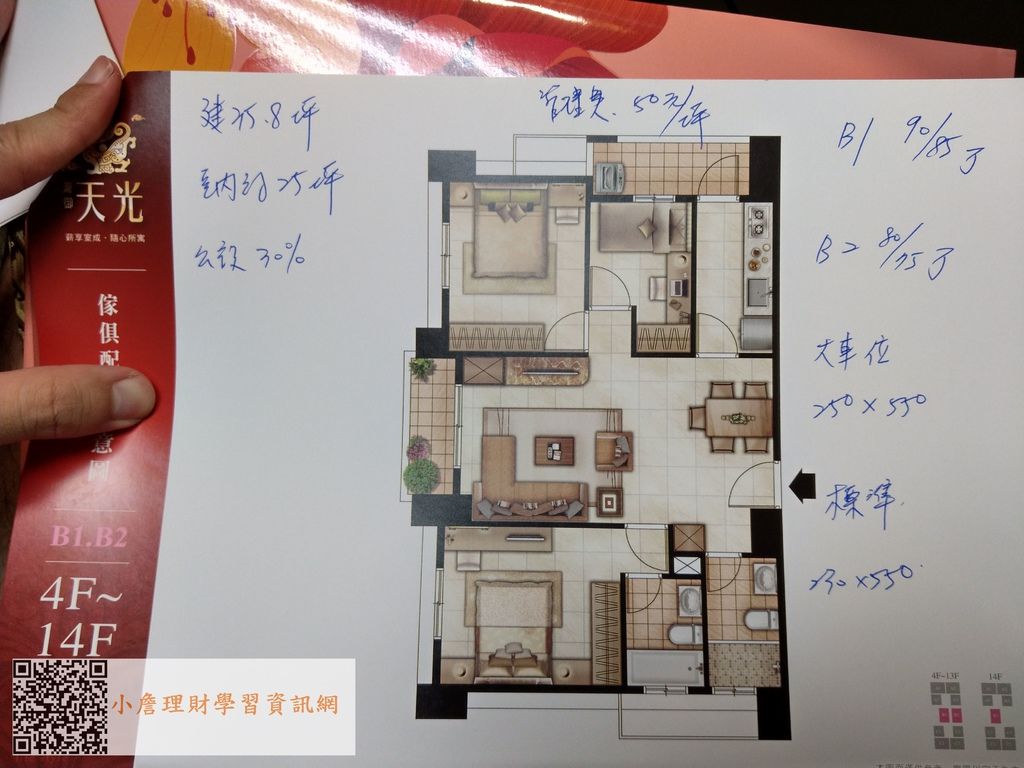 天光
薪享室成・隨心所寓
傢俱配
意圖
B1.B2
4F~
14F
建25.8坪
室內約25坪
公設30%
管理費 50元/坪
B1 90/85了
B2 80/75了
大車位
250×550
標準
230×550
4F~13F
14F
小詹理財學習資訊網